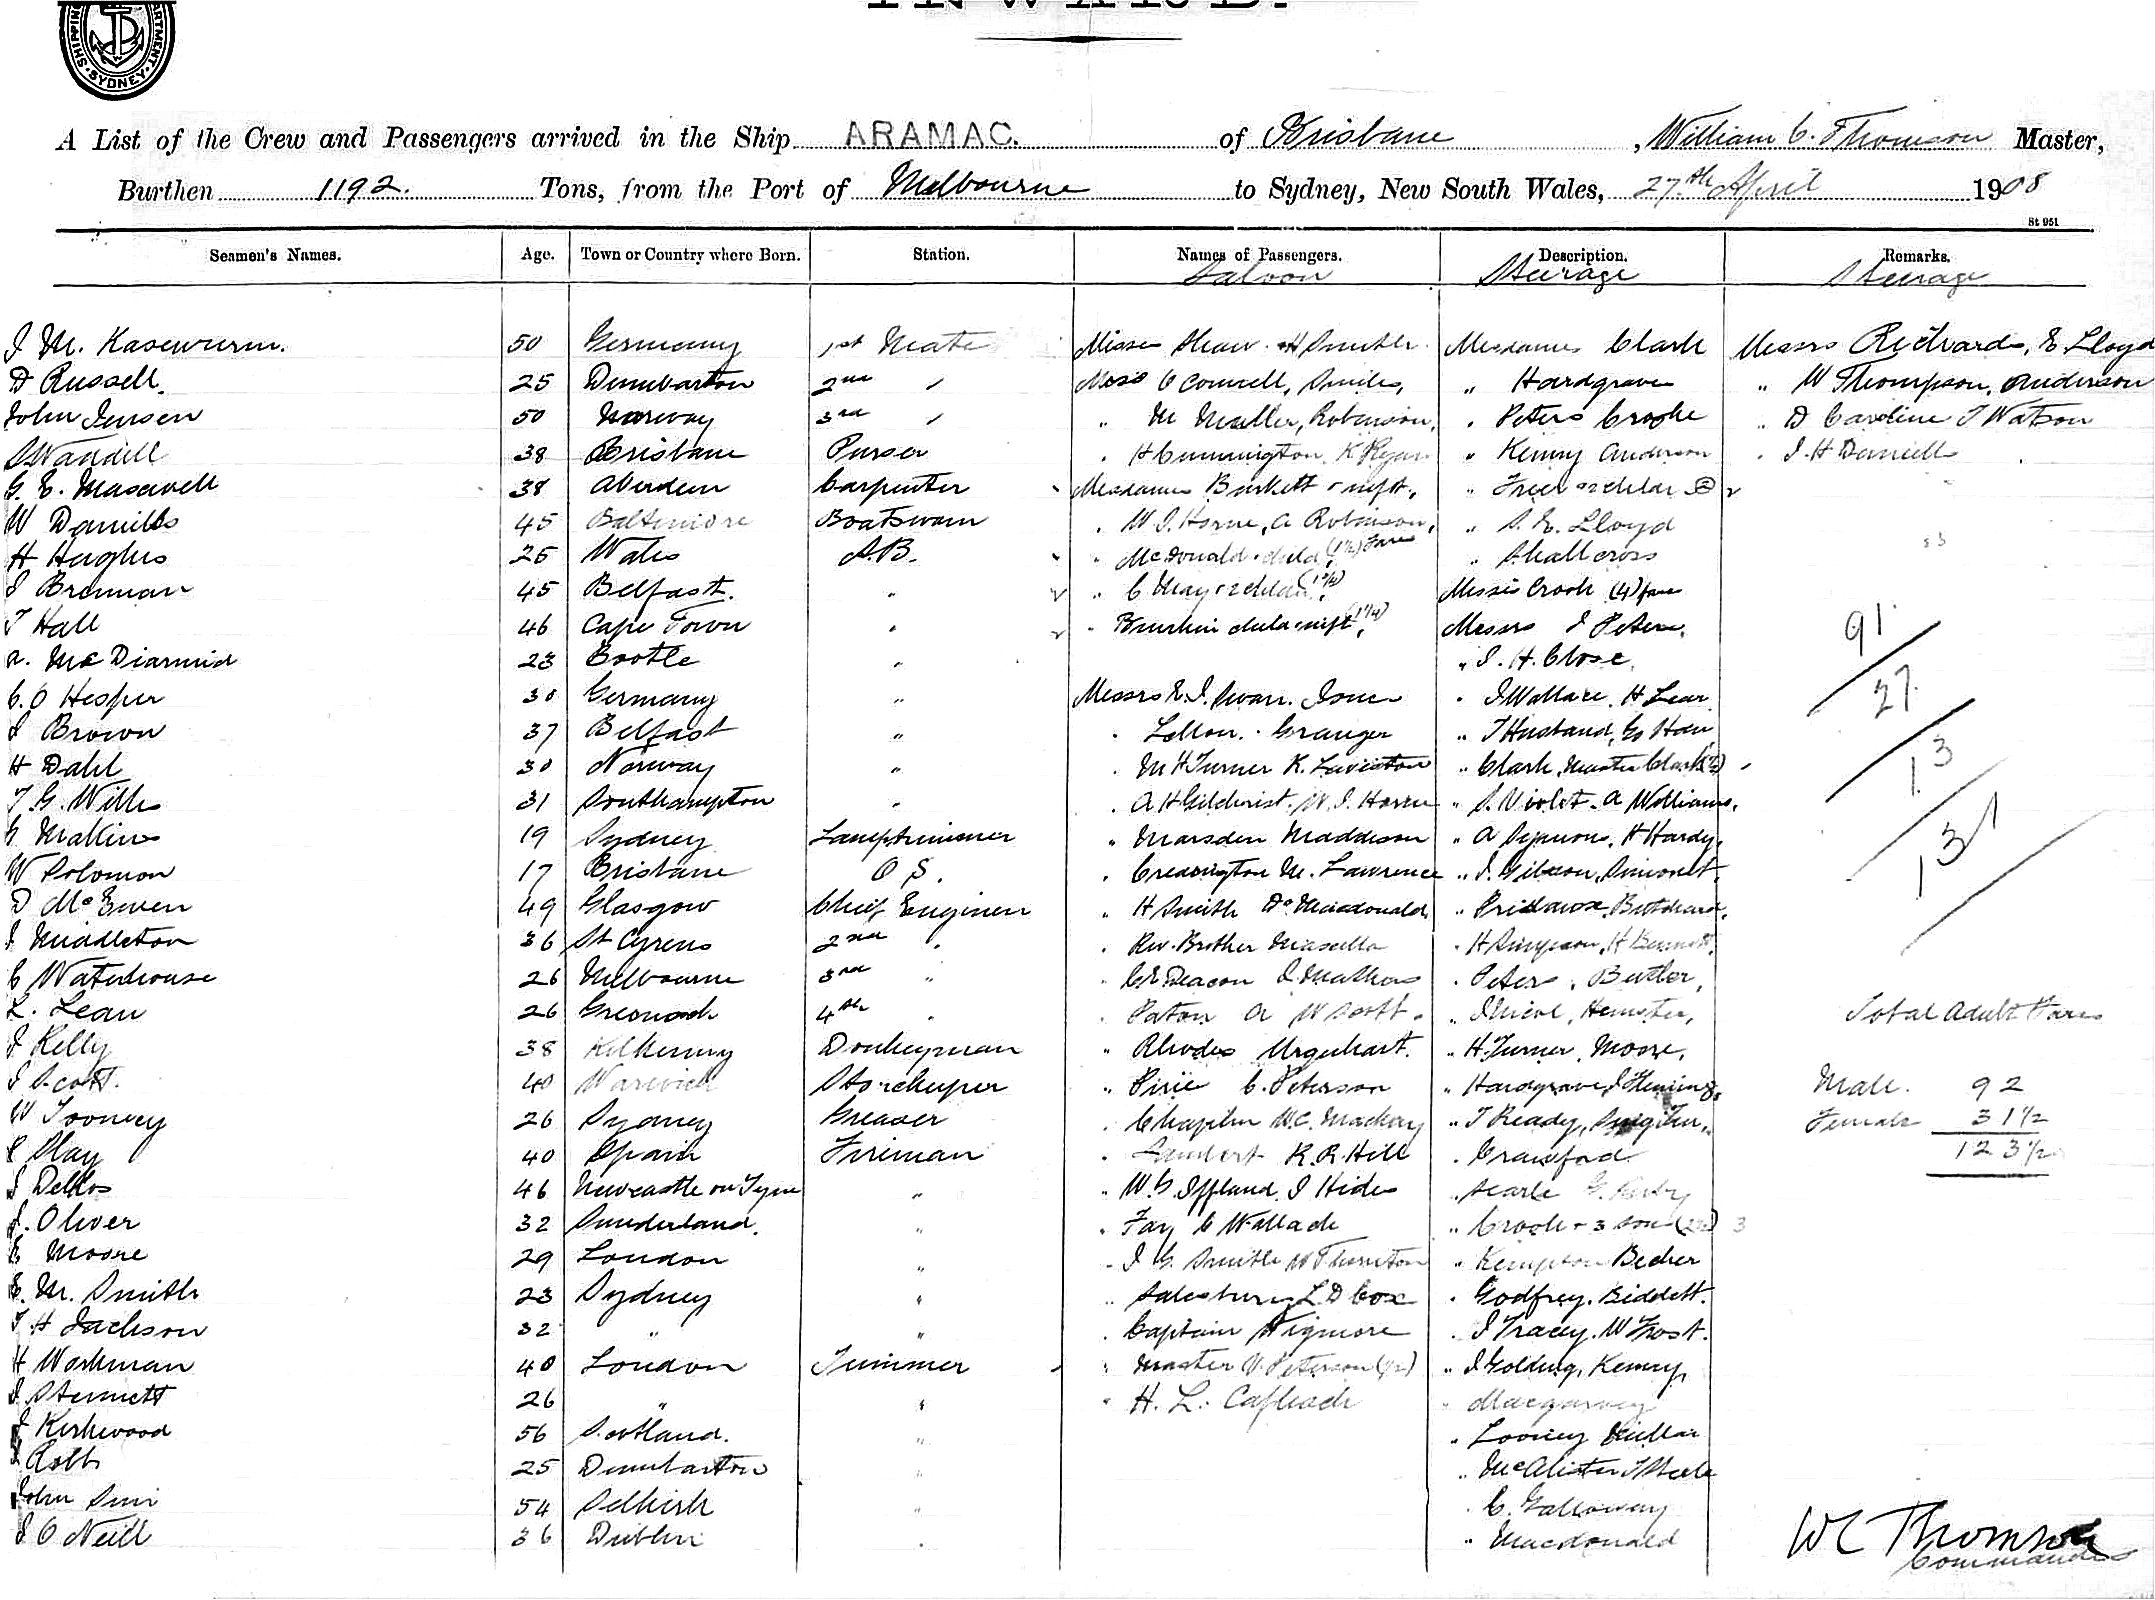 SHIPPING DEPARTMENT SYDNEY
INWARD.
A List of the Crew and Passengers arrived in the Ship ARAMAC. of Brisbane, William C. Thomson Master,
Burthen 1192. Tons, from the Port of Melbourne to Sydney, New South Wales, 27th April 1908
St 951
Seamen's Names. Age. Town or Country where Born. Station. Names of Passengers. Description. Remarks.
Saloon Steerage Steerage
J M. Kasewurm. 50 Germany 1st Mate Misses Shaw H Smith Mesdames Clark Messrs Richards, E. Lloyd
D Russell. 25 Dumbarton 2nd " O'Connell, Smiles, " Hardgrave " W Thompson, Anderson
John Jensen 50 Norway 3rd " M Muller, Robinson, " Peters Crooke " D Caroline J Watson
S Waddell 38 Brisbane Purser " H Cunnington K Ryan " Kenny Anderson " J. H Daniell
G. E. Maxwell 38 Aberdeen Carpenter Mesdames Burkett & inft,
W Daniells 45 Baltimore Boatswain " W J. Horne, A Robinson, " S. E. Lloyd
H Hughes 25 Wales A.B. " McDonald & child (1½) Fares " Shallcross
J Brennan 45 Belfast. " " C May & 2 childn Misses Crook (4) fares
T Hall 46 Cape Town " " child & inft Messrs J Peters, 91
A. McDiarmid 23 Bootle " " J. H. Close,
C. O Hesper 30 Germany " Messrs E. J. Swan. " J Wallace. H Lear 27
J Brown 37 Belfast " " Granger " T Husband, G
H Dahl 30 Norway " " M H Turner K. Laviston " Clark, Master Clark (½) 13
T. G. Wills 31 Southampton " " A H Gilchrist. W. J. Horne " S. Violet. A Williams,
G Makins 19 Sydney Lamptrimmer " Marsden Maddison " A Symons, H Hardy, 131
W Solomon 17 Brisbane O S. " M. Lawrence " J. Gibson, Simonet,
D McEwen 49 Glasgow Chief Engineer " H Smith Dr Macdonald " Prideaux, Butchard,
J Middleton 36 St Cyrens 2nd " " Rev. Brother " H Simpson, H Bennett,
C Waterhouse 26 Melbourne 3rd " " C E Deacon J. Mathers " Peters, Butler,
L. Lean 26 Greenock 4th " " Paton A W Scott. " J Nicol, Total Adult Fares
J Kelly 38 Kilkenny Donkeyman " Rhodes Urquhart. " H. Turner, Moore,
J Scott. 40 Warwick Storekeeper " Pirie C. Peterson " Hardgrave, J Fleming, Male. 92
W Toomey 26 Sydney Greaser " Chaplin W. C. Mackay " T Ready, Female 31½
P Slay 40 Spain Fireman " Lambert K. R. Hill " Crawford 123½
46 Newcastle on Tyne " " W. G. Iffland. J Hides " Searle
J. Oliver 32 Sunderland. " " Fay C Wallach " Crook & 3 sons 3
E Moore 29 London " " J G. Smith W Thornton " Kempton Becher
E. M. Smith 23 Sydney " " Salesbury L. D Cox " Godfrey. Biddett.
T H Jackson 32 " " " Captain Wigmore " J Tracey. W Frost.
H Workman 40 London Trimmer " Master V. Peterson (½) " J Golding, Kenny,
J. Stennett 26 " " " H. L.
J Kirkwood 56 Scotland. " " Looney Millar
J Robb 25 Dumbarton " " McAlister J Steele
John Sim 54 Selkirk " " C. Galloway
J O'Neill 36 Dublin " " Macdonald
W C Thomson
Commander